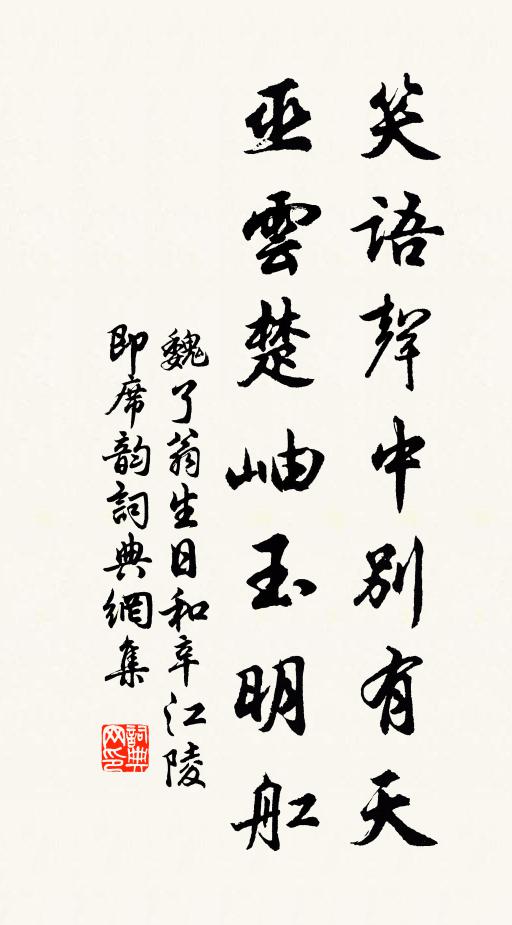 笑語聲中別有天
巫雲楚岫玉明舡
魏了翁生日和辛江陵
即席韵詞典網集
詞典
网印